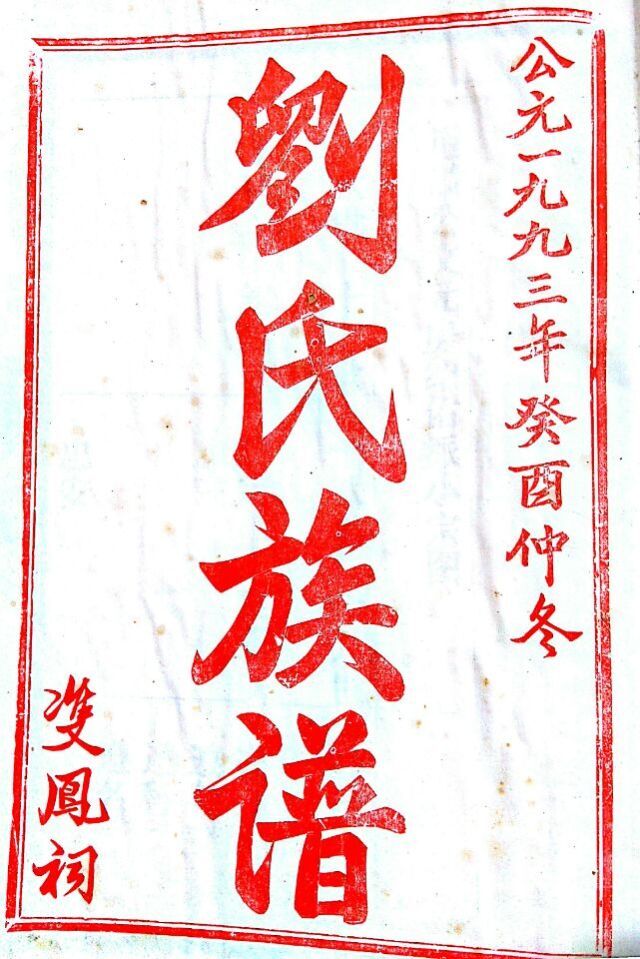 公元一九九三年癸酉仲冬
劉氏族谱
雙鳳祠